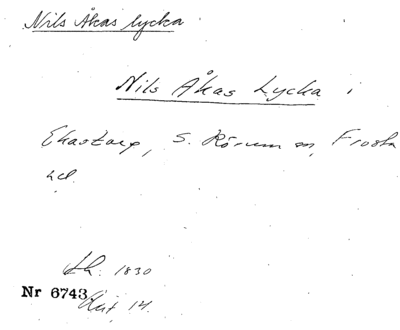 Nils Åkas lycka
Nils Åkas Lycka i
Ekastorp, S. Rörum sn, Frosta
hd.
Lh. 1830
Nr 6743
Akt 14.